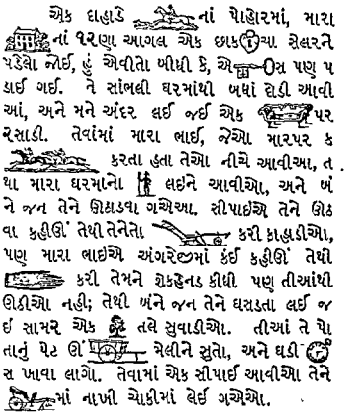 એક દાહાડે નાં પોહારમાં, મારા
નાં બારણા આગલ એક છાક ચા સેલરને
પડેલો જોઈ, હું એવીતો બીધી કે, એ સ પણ પ
ડાઈ ગઈ. ને સાંભલી ઘરમાંથી બધાં દોડી આવી
આં, અને મને અંદર લઈ જઈ એક પર
બેસાડી. તેવાંમાં મારા ભાઈ, જેઓ મારપર ક
કરતા હતા તેઓ નીચે આવીઆ, ત
થા મારા ઘરમાનો લઇને આવીઓ, અને બં
ને જન તેને ઊઠાડવા ગએઆ. સીપાઇએ તેને ઊઠ
વા કહીઊં તેથી તેનેતો કરી કાહાડીઓ,
પણ મારા ભાઇએ અંગરેજીમાં કંઈ કહીઊં તેથી
કરી તેમને શેકહેનડ કીધી પણ તીઆંથી
ઊઠીઓ નહી; તેથી બંને જન તેને ઘસડતા લઈ જ
ઇ સામર એક તલે સુવાડીઓ. તીઆં તે પો
તાનું પેટ ઊં મેલીને સુતો, અને ઘડી
સ ખાવા લાગો. તેવામાં એક સીપાઈ આવીઓ તેને
માં નાખી ચોકીમાં લેઈ ગએઓ.